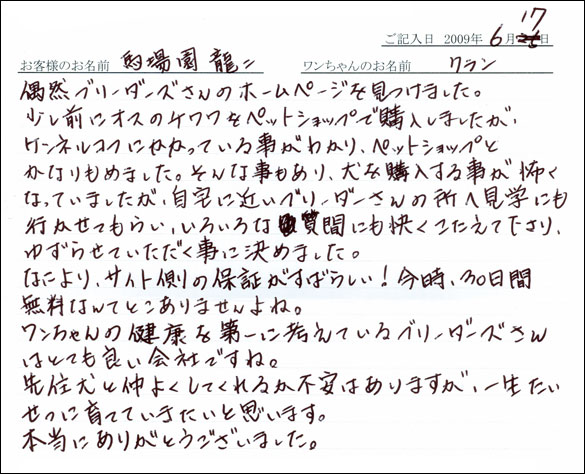 ご記入日 2009年 6月 17日
お客様のお名前 馬場園 龍二 ワンちゃんのお名前 クラン
偶然ブリーダーズさんのホームページを見つけました。
少し前にオスのチワワをペットショップで購入しましたが、
ケンネルコフにかかっている事がわかり、ペットショップと
かなりもめました。そんな事もあり、犬を購入する事が怖く
なっていましたが、自宅に近いブリーダーさんの所へ見学にも
行かせてもらい、いろいろな質問にも快くこたえて下さり、
ゆずらせていただく事に決めました。
なにより、サイト側の保証がすばらしい！今時、30日間
無料なんてとこありませんよね。
ワンちゃんの健康を第一に考えているブリーダーズさん
はとても良い会社ですね。
先住犬と仲よくしてくれるか不安はありますが、一生たい
せつに育てていきたいと思います。
本当にありがとうございました。